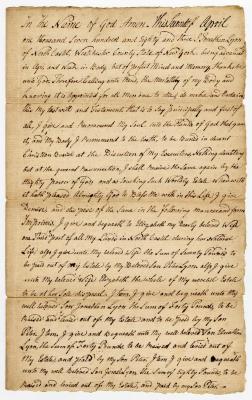 In the Name of God Amen. This of April
one thousand Seven hundred and Eighty and three, I Jonathan Lyon
of North Castle Westchester County State of New York being advanced
in Age and Weak in Body but of perfect Mind and Memory Thanks be
unto God, Therefore Calling unto Mind the Mortality of my Body and
Knowing it is appointed for all Men once to die, do make and Ordain
this my last Will and Testament, that is to say Principally and first of
all, I give and Recommend my Soul into the Hands of God that gave
it, and my Body I Recommend to the Earth to be Buried in decent
Christian Burial at the Discretion of my Executors, Nothing doubting
but at the general Resurrection, I shall receive the same again by the
Mighty power of God; and as touching such Worldly Estate wherewith
it hath pleased Almighty God to Bless Me with in this Life, I give
Demise and dispose of the Same in the following manner and form
Imprimis, I give and bequeath to Elizabeth my dearly beloved Wife
one Third part of all my Lands in North Castle during her Natural
Life, also I give unto my beloved Wife the Sum of Pounds to
be paid out of my Estate by My Beloved Son Peter Lyon, also I give
unto my beloved Wife Elizabeth the whole of my Estate
to be at her disposal, Item, I give and Bequeath unto my
well beloved Son Jonathan Lyon the Sum of Forty Pounds to be
raised and levied out of my Estate and to be paid by my Son
Peter, Item, I give and bequeath unto my well beloved Son
Lyon, the Sum of Forty Pounds to be raised and levied out of
My Estate and paid by my Son Peter, Item I give and bequeath
unto my well beloved Son Lyon the Sum of Eighty Pounds to be
raised and levied out of my Estate, and paid by my Son Peter